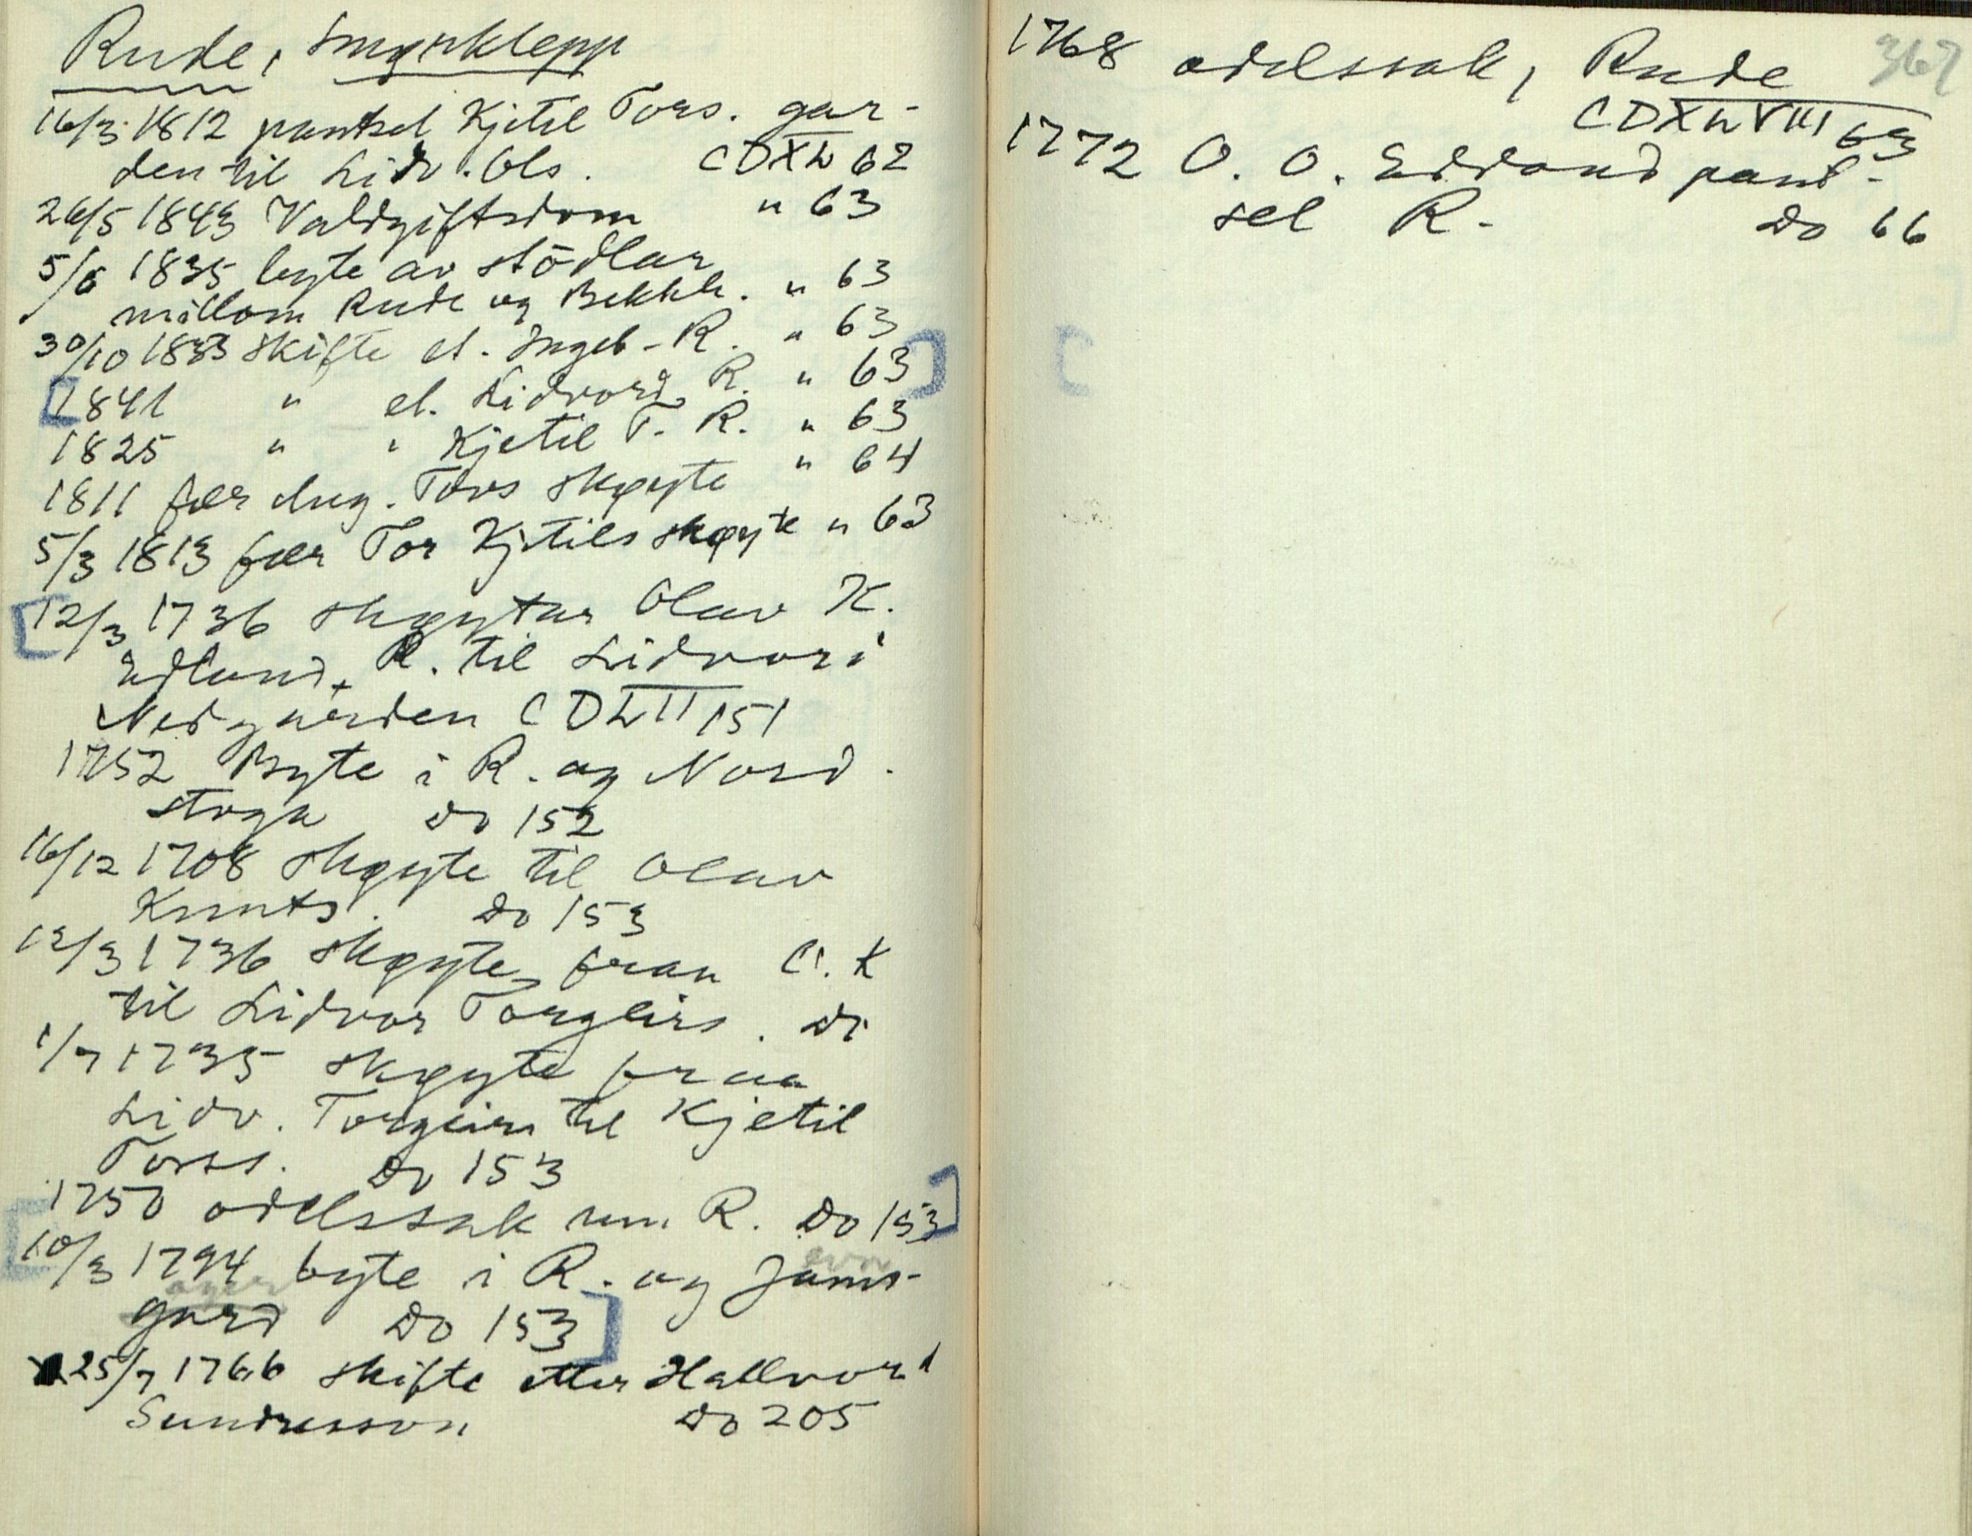 Rude, Smørklepp
16/3 1812 pantsel Kjetil Tors. gar-
den til Lidv. Ols. CDXL 62
26/5 1843 Valdgiftsdom " 63
5/6 1835 byte av stödlar
millom Rude og Bekkh. " 63
30/10 1833 skifte et. Ingeb. R. " 63
[1841 " et. Lidvord R. " 63]
1825 " " Kjetil T. R. " 63
1811 fær Aug. Tors skøyte " 64
5/3 1813 fær Tor Kjetils skøyte " 63
[12/3 1736 skøytar Olav K.
Edland, R. til Lidvor i
Nedgarden CDLII 151
1752 Byte i R. og Nord-
stoga Do 152
16/12 1708 skøyte til Olav
Knuts. Do 153
12/3 1736 skøyte fraa O. K
til Lidvor Torgeirs. Do
1/7 1735 skøyte fraa
Lidv. Torgeirs til Kjetil
Torss. Do 153
1750 odelssak um R. Do 153]
[10/3 1794 byte i R. og Jams-
gard Do 153]
25/7 1766 skifte etter Hallvord
Sundresson Do 205
367
1768 odelssak, Rude
CDXLVIII 63
1772 O. O. Edland pant-
sel R. Do 66